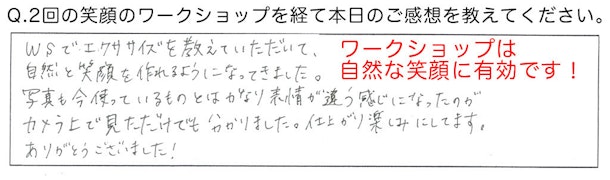 Q.2回の笑顔のワークショップを経て本日のご感想を教えてください。
WSでエクササイズを教えていただいて、
自然と笑顔を作れるようになってきました。
写真も今使っているものとはかなり表情が違う感じになったのが
カメラ上で見ただけでも分かりました。仕上がり楽しみにしてます。
ありがとうございました!
ワークショップは
自然な笑顔に有効です!